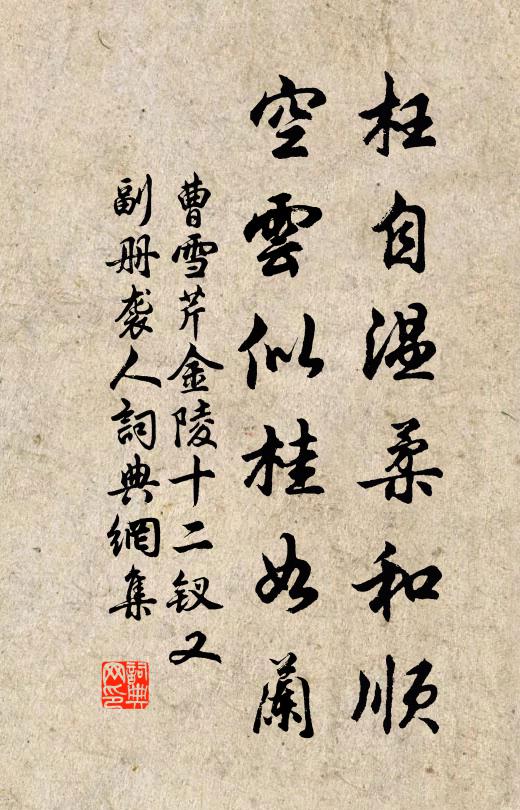 枉自温柔和順
空雲似桂如蘭
曹雪芹金陵十二钗又
副册袭人詞典網集
詞典网印